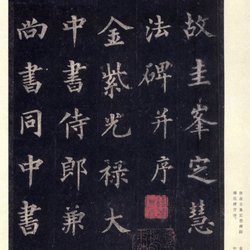 故圭峯定慧
法碑并序
金紫光祿大
中書侍郎兼
尚書同中書